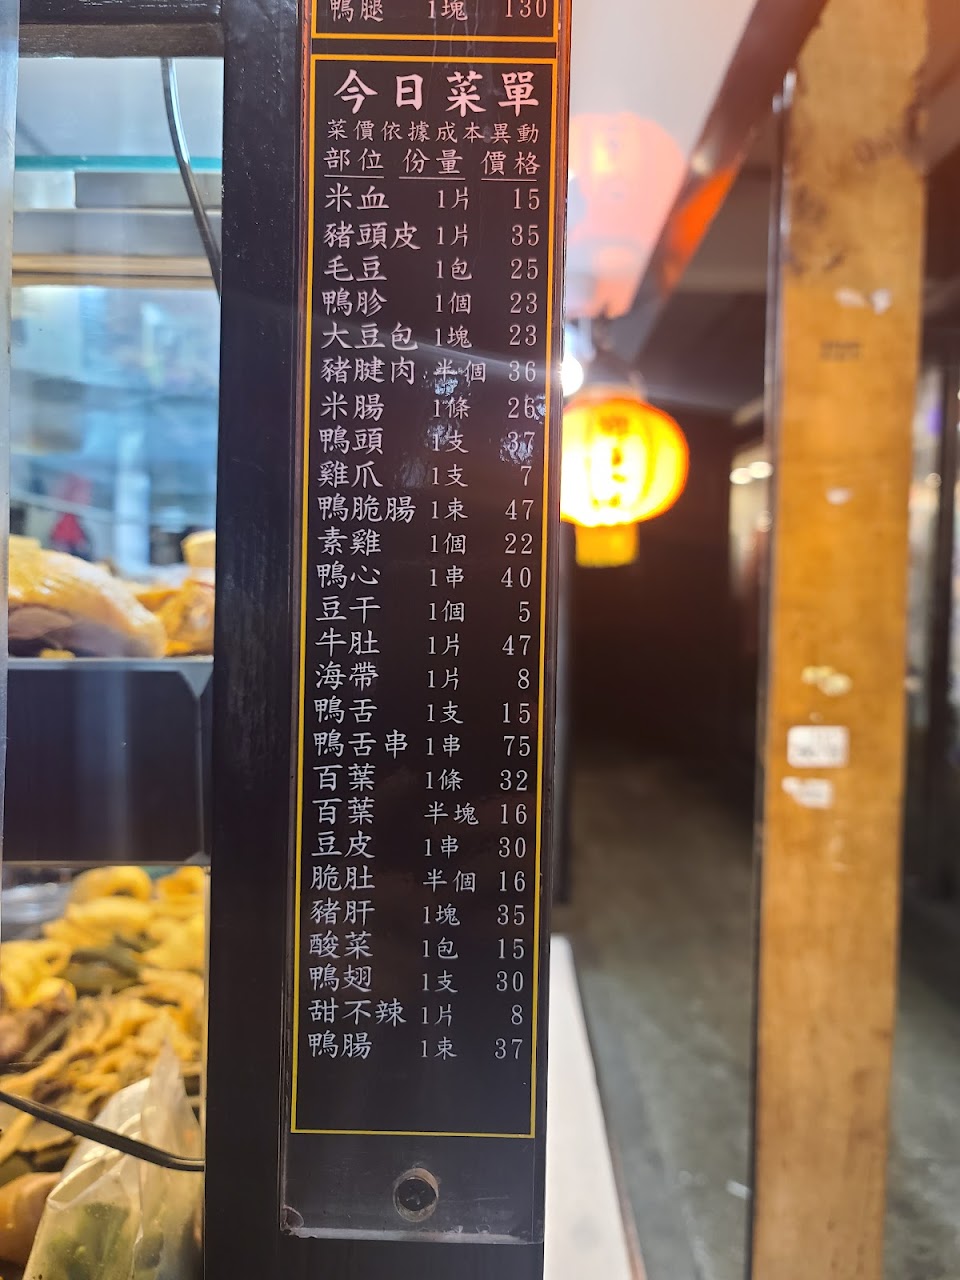 鴨腿 1塊 130
今日菜單
菜價依據成本異動
部位 份量 價格
米血 1片 15
豬頭皮 1片 35
毛豆 1包 25
鴨胗 1個 23
大豆包 1塊 23
豬腱肉 半個 36
米腸 1條 26
鴨頭 1支 37
雞爪 1支 7
鴨脆腸 1束 47
素雞 1個 22
鴨心 1串 40
豆干 1個 5
牛肚 1片 47
海帶 1片 8
鴨舌 1支 15
鴨舌串 1串 75
百葉 1條 32
百葉 半塊 16
豆皮 1串 30
脆肚 半個 16
豬肝 1塊 35
酸菜 1包 15
鴨翅 1支 30
甜不辣 1片 8
鴨腸 1束 37